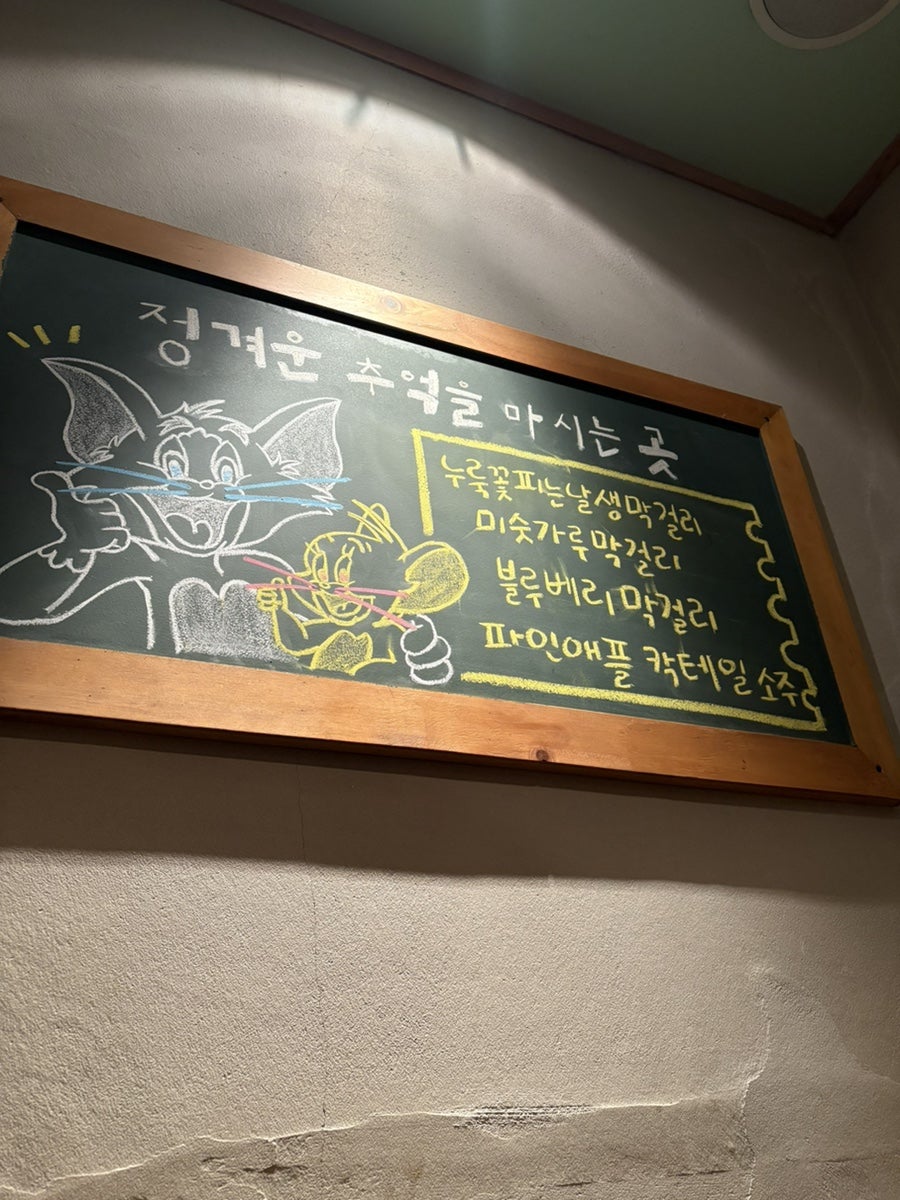 정겨운 추억을 마시는 곳
누룩꽃피는날생막걸리
미숫가루막걸리
블루베리막걸리
파인애플 칵테일소주